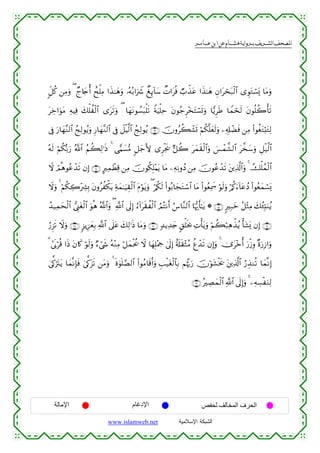 المصحف الشريف برواية هشام عن ابن عامر
وَمَا يَسْتَوِي الْبَحْرَانِ هَذَا عَذْبٌ فُرَاتٌ سَائِغٌ شَرَابُهُ وَهَذَا مِلْحٌ أُجَاجٌ وَمِن كُلٍّ
تَأْكُلُونَ لَحْمًا طَرِيًّا وَتَسْتَخْرِجُونَ حِلْيَةً تَلْبَسُونَهَا وَتَرَى الْفُلْكَ فِيهِ مَوَاخِرَ
لِتَبْتَغُوا مِن فَضْلِهِ وَلَعَلَّكُمْ تَشْكُرُونَ ۝ يُولِجُ اللَّيْلَ فِي النَّهَارِ وَيُولِجُ النَّهَارَ فِي
اللَّيْلِ وَسَخَّرَ الشَّمْسَ وَالْقَمَرَ كُلٌّ يَجْرِي لِأَجَلٍ مُسَمًّى ذَلِكُمُ اللَّهُ رَبُّكُمْ لَهُ
الْمُلْكُ وَالَّذِينَ تَدْعُونَ مِن دُونِهِ مَا يَمْلِكُونَ مِن قِطْمِيرٍ ۝ إِن تَدْعُوهُمْ لَا
يَسْمَعُوا دُعَاءَكُمْ وَلَوْ سَمِعُوا مَا اسْتَجَابُوا لَكُمْ وَيَوْمَ الْقِيَامَةِ يَكْفُرُونَ بِشِرْكِكُمْ وَلَا
يُنَبِّئُكَ مِثْلُ خَبِيرٍ ۝ * يَاأَيُّهَا النَّاسُ أَنتُمُ الْفُقَرَاءُ إِلَى اللَّهِ وَاللَّهُ هُوَ الْغَنِيُّ الْحَمِيدُ
۝ إِن يَشَأْ يُذْهِبْكُمْ وَيَأْتِ بِخَلْقٍ جَدِيدٍ ۝ وَمَا ذَلِكَ عَلَى اللَّهِ بِعَزِيزٍ ۝ وَلَا تَزِرُ
وَازِرَةٌ وِزْرَ أُخْرَى وَإِن تَدْعُ مُثْقَلَةٌ إِلَى حِمْلِهَا لَا يُحْمَلْ مِنْهُ شَيْءٌ وَلَوْ كَانَ ذَا قُرْبَى
إِنَّمَا تُنذِرُ الَّذِينَ يَخْشَوْنَ رَبَّهُم بِالْغَيْبِ وَأَقَامُوا الصَّلَاةَ وَمَن تَزَكَّى فَإِنَّمَا يَتَزَكَّى
لِنَفْسِهِ وَإِلَى اللَّهِ الْمَصِيرُ ۝
الحرف المخالف لحفص الإدغام الإمالة
الشبكة الإسلامية www.islamweb.net